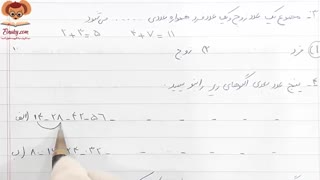 Finaby.com
۳- مجموع یک عدد زوج و یک عدد فرد همواره عددی ...... می‌شود.
۲+۳=۵ ۴+۷=۱۱
۱) فرد ۲) زوج
۴- پنج عدد بعدی الگوهای زیر را بنویسید.
الف) ۱۴-۲۸-۴۲-۵۶- - - - -
ب) ۸-۱ ۲۴-۳۲- - - - -